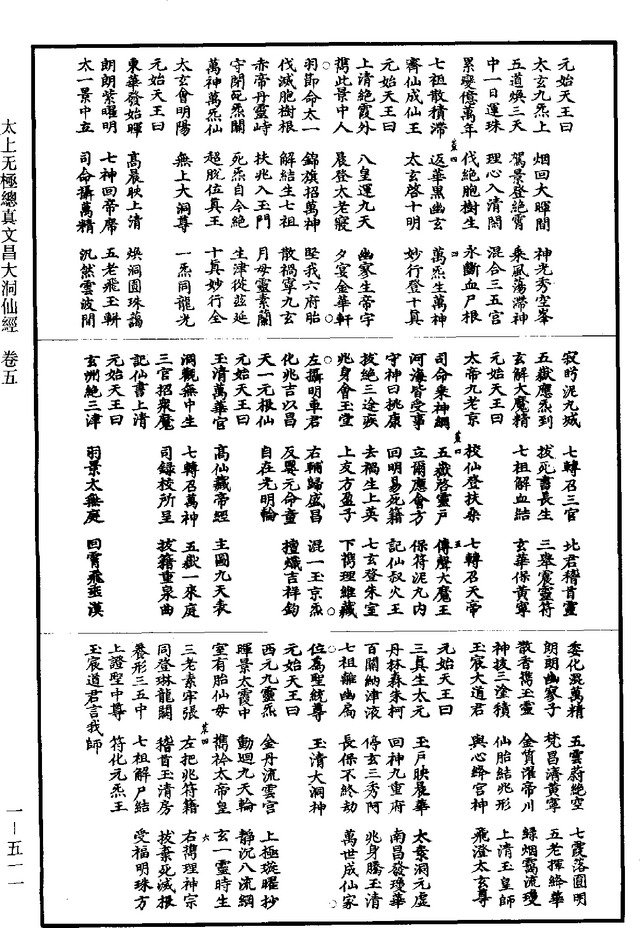 元始天王曰
太玄九炁上　烟回大暉間　神光秀空峯
五道煥三天　駕景登絕霄　乘風蕩滯神
中一日運珠　理心入清閒　混合三五宮
累變億萬年　伐絕胞樹生　永斷血尸根
七祖散積滯　返華黑幽玄　萬炁生萬神
齊仙成仙王　太玄啓十明　妙行登十真
元始天王曰
上清絕霞外　八皇運九天　幽寥生帝宇
攜此景中人　晨登太老寢　夕宴金華軒
羽節命太一　錦旗招萬神　堅我六府胎
伐滅胞樹根　解結生七祖　散禍寧九玄
赤帝丹靈峙　扶兆入玉門　月母靈素蘭
守閉死炁關　死炁自令絕　生津從兹延
萬神萬炁仙　超脫位真王　十真妙行全
太玄會明陽　無上大洞尊　一炁同龍光
元始天王曰
東華發始暉　高晨映上清　煥洞圓珠藹
朗朗紫曜明　七神回帝席　五老飛玉軿
太一景中立　司命攝萬精　汎然雲波間
寂眄泥丸城　七轉召三官　北君稽首靈
五嶽應炁到　拔死書長生　三舉震靈符
玄解大魔精　七祖解血結　玄華保黃寧
元始天王曰
太帝九老京　校仙登扶桑　七轉召天帝
司命乘神綱　五嶽啓靈戶　傳聲大魔王
河海皆受事　立爾應會方　保符泥丸內
守神曰挑康　回明易死籍　記仙叔火王
拔絕三途疾　去禍生上英　七玄登朱室
兆身會玉堂　上友方盈子　下攜理維藏
左攝明車君　右輔歸盛昌　混一玉京炁
化兆吉以昌　反嬰元命童　擅熾吉祥鈞
天一元根仙　自在光明輪
元始天王曰
玉清萬華宮　高仙藏帝經　主圖九天表
洞觀無中生　七轉召萬神　五嶽一來庭
三官招衆魔　司錄校所呈　拔籍重泉曲
記仙書上清
元始天王曰
玄洲絕三津　羽景太無庭　回霄飛垂漢
委化混萬精　五雲蔚絕空　七霞落圓明
朗朗幽寥子　梵昌濟黃寧　五老揮絳華
散香攜玉靈　金質濯帝川　綠烟靄流瓊
神拔三塗積　仙胎結兆形　上清玉皇師
玉宸大道君　與心絳宮神　飛澄太玄尊
元始天王曰
三真生太元　玉戶映晨華　太素洞元虛
丹林森朱柯　回神九重府　南昌發瓊華
百關納津液　停玄三秀阿　兆身騰玉清
七祖離幽局　長保不終劫　萬世成仙家
位為聖統尊　玉清大洞神
元始天王曰
西元九靈炁　金丹流雲宮　上極璇曜抄
暉景太霞中　動迴九天輪　靜沉八流綱
室有胎仙母　攜衿太帝皇　玄一靈時生
三老素牢張　左把兆符籍　右攜理神宗
同登琳龍關　稽首玉清房　拔棄死滅根
養形三五中　七祖解尸結　受福明珠方
上證聖中尊　符化元炁王
玉宸道君言我師
太上无極總真文昌大洞仙經　卷五
一—五一一